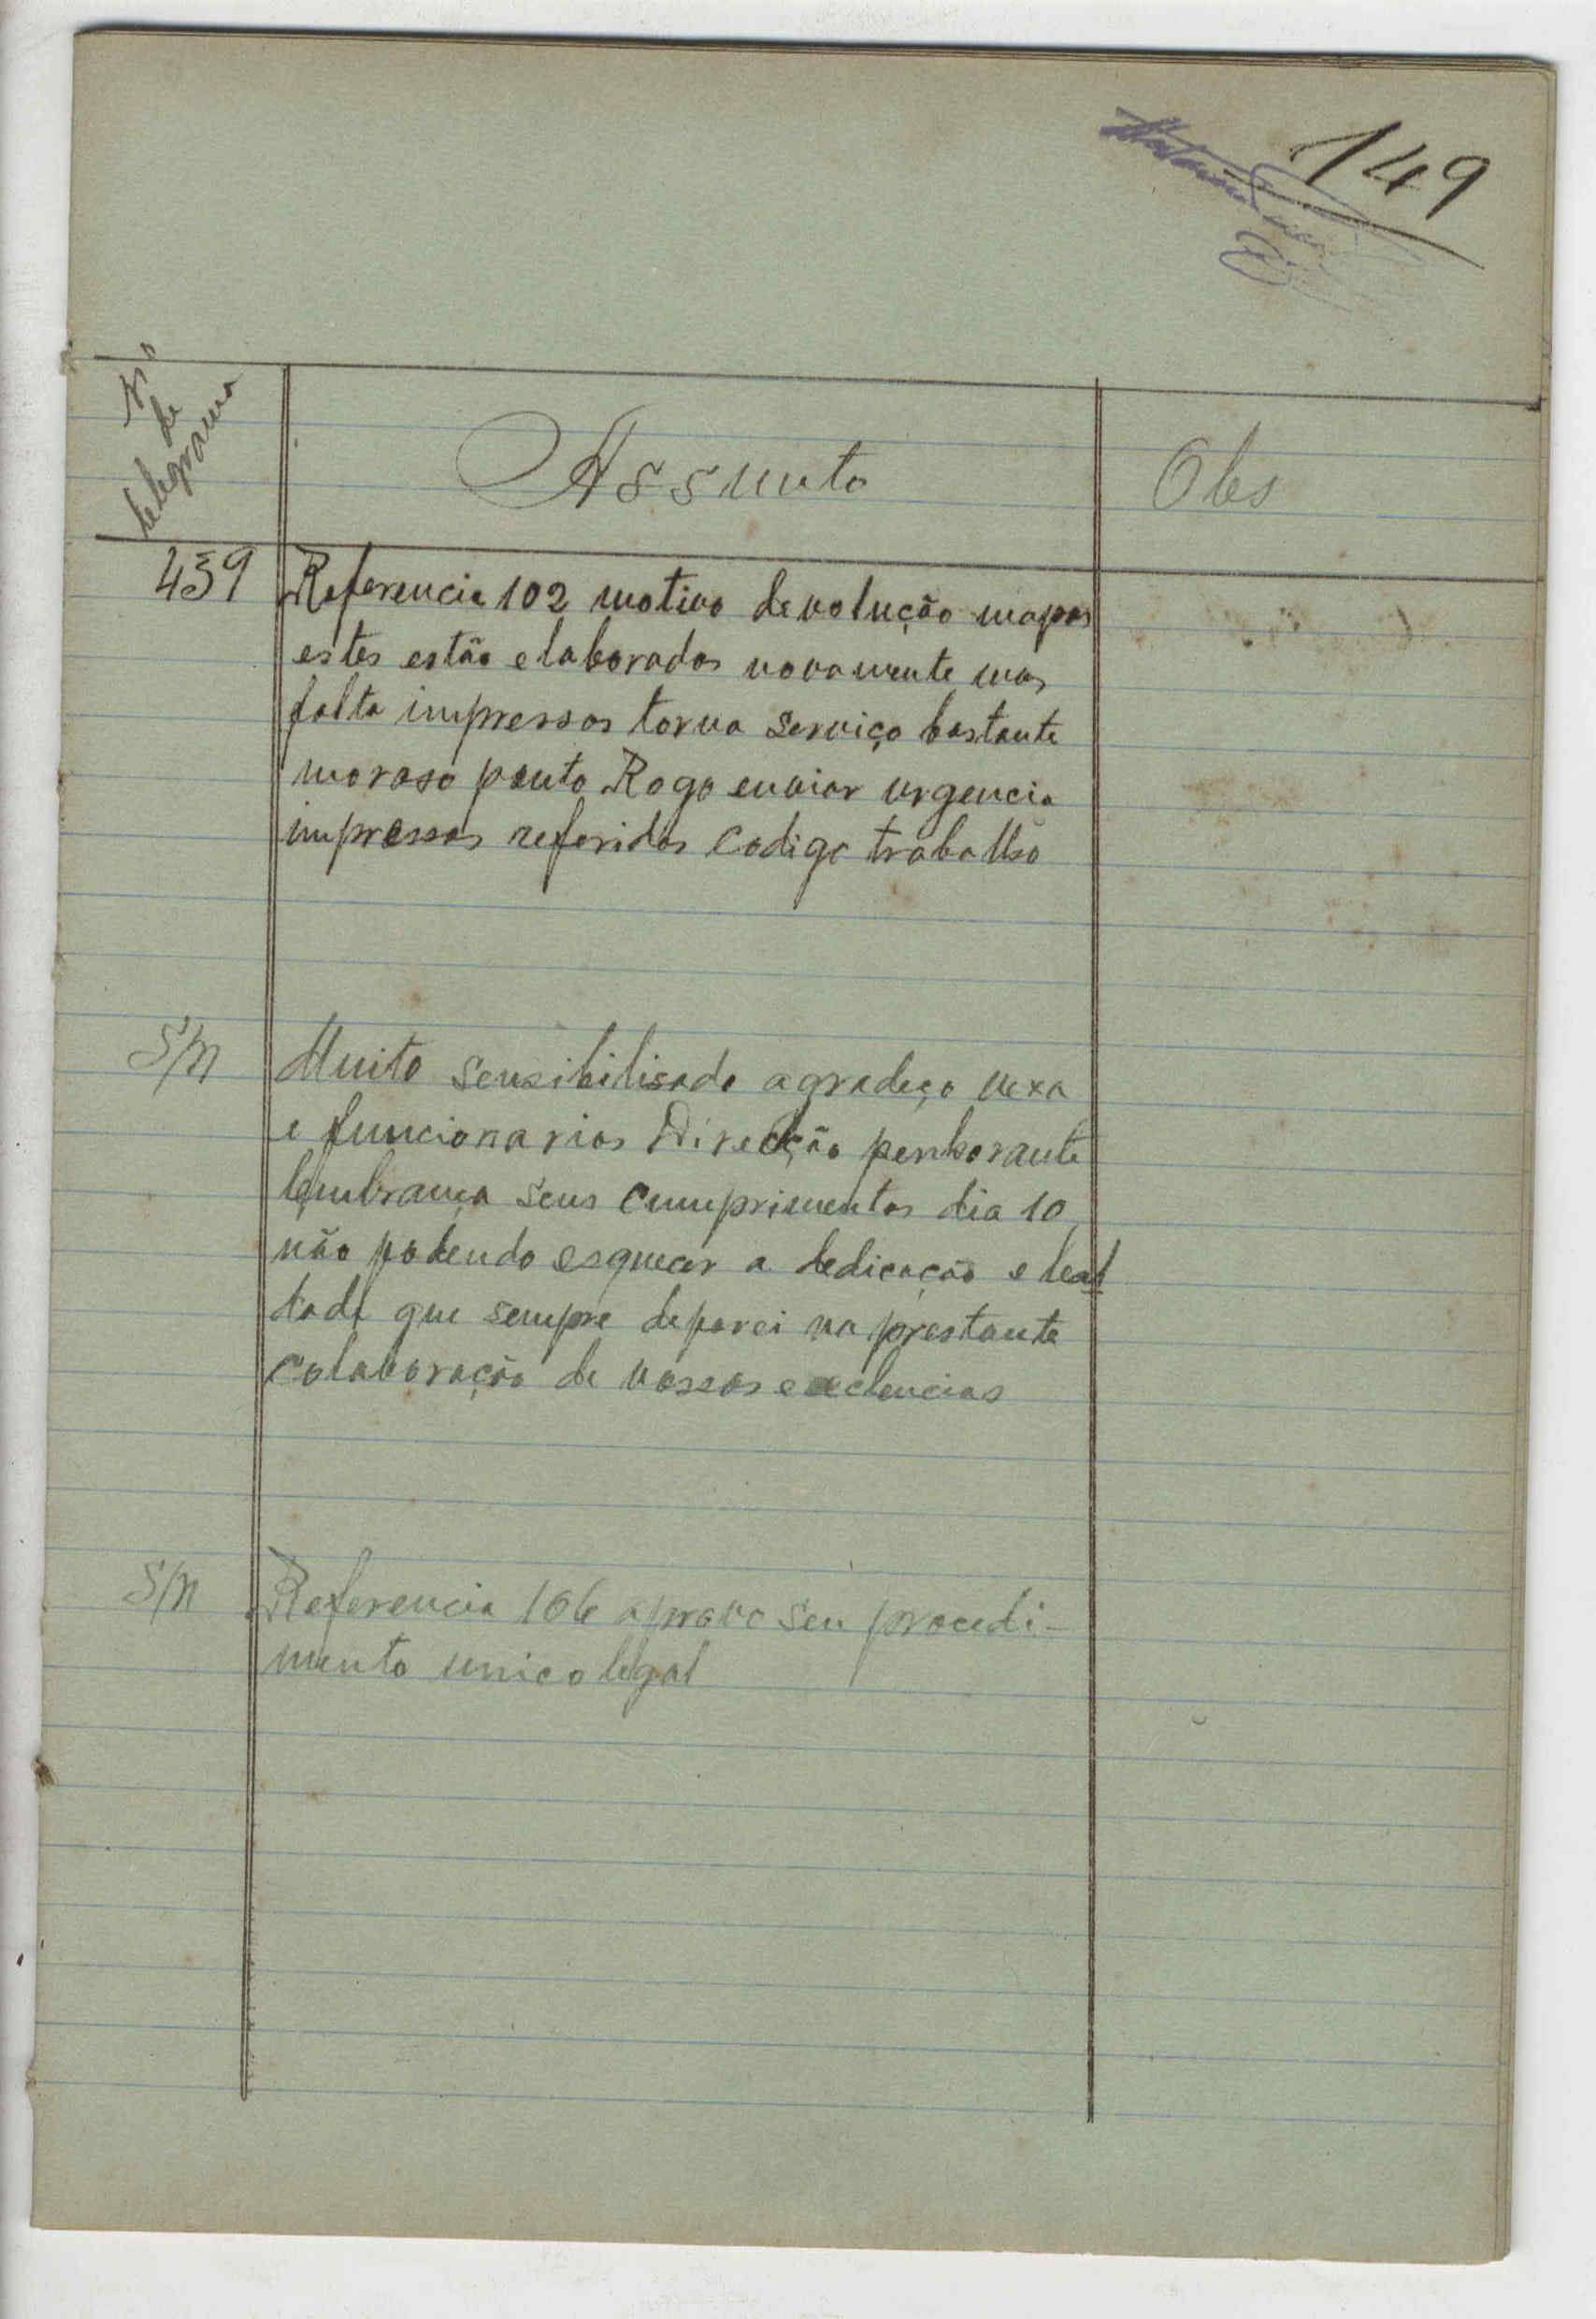 149
Nº
de
telegrama
Assunto
Obs
439
Referencia 102 motivo devolução mapas
estes estão elaborados novamente mas
falta impressos torna serviço bastante
moroso ponto Rogo enviar urgencia
impressos referidos codigo trabalho
S/n
Muito sensibilisado agradeço vexa
e funcionarios Direcção penhorante
lembrança seus cumprimentos dia 10
não podendo esquecer a dedicação e leal
dade que sempre deparei na prestante
colaboração de vossas excelencias
S/n
Referencia 106 aprovo seu procedi-
mento unico legal